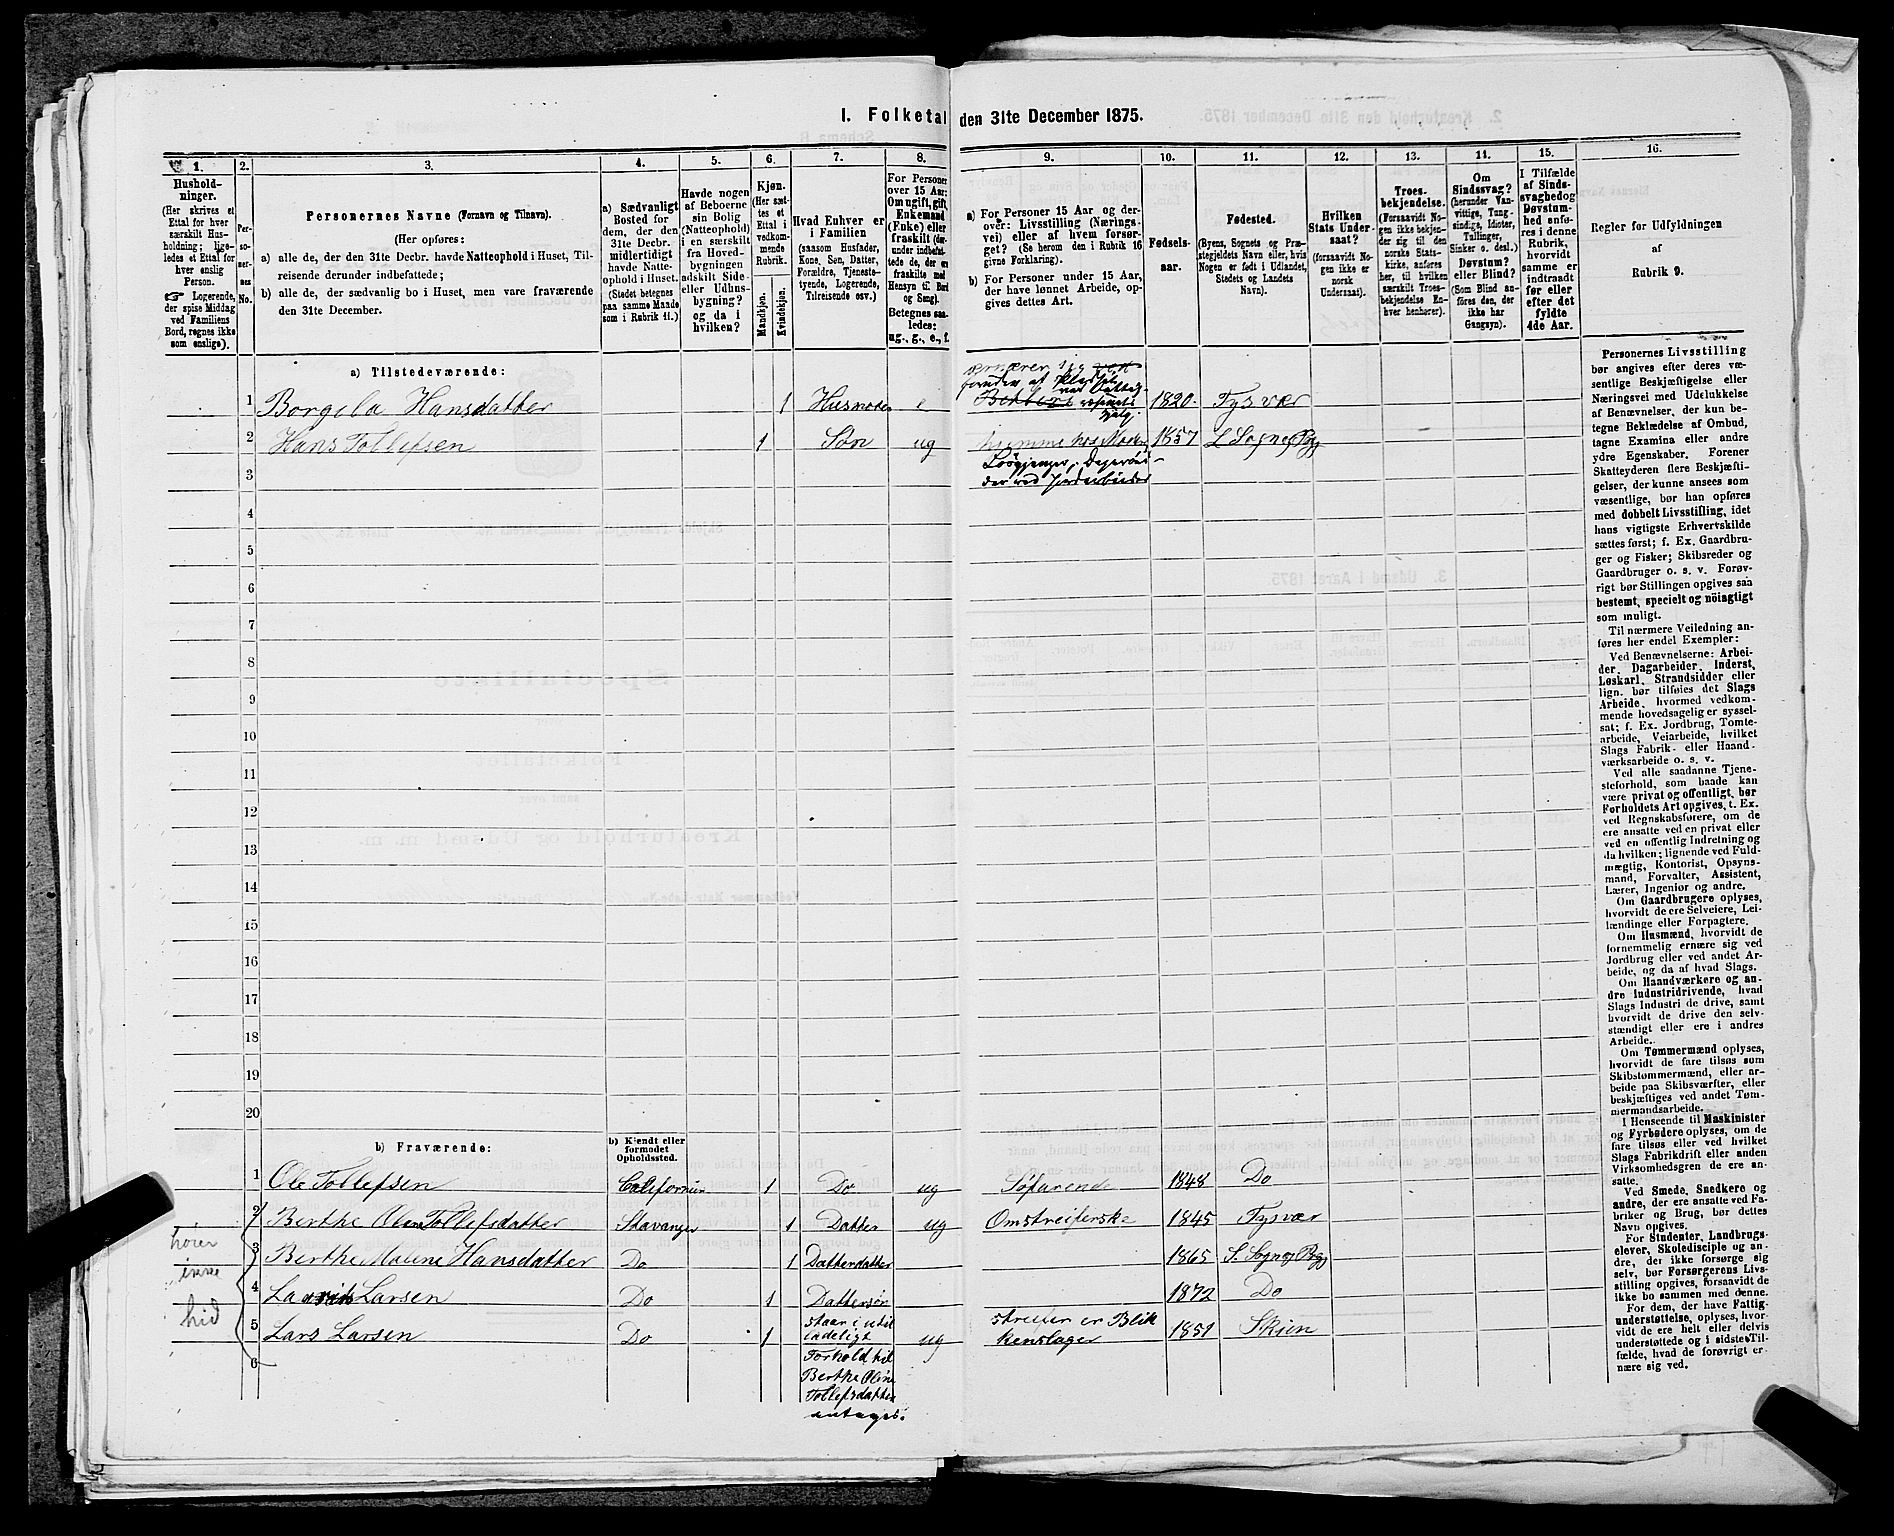 I. Folketal den 31te December 1875.
1. 2. 3. 4. 5. 6. 7. 8. 9. 10. 11. 12. 13. 14. 15. 16.
Hushold-
ninger.
(Her skrives et
Ettal for hver
særskilt Hus-
holdning; lige-
ledes et Ettal for
hver enslig
Person.
☞ Logerende,
der spise Middag
ved Familiens
Bord, regnes ikke
som enslige).
Per-
so-
ner-
nes
No.
Personernes Navne (Fornavn og Tilnavn).
(Her opføres:
a) alle de, der den 31te Decbr. havde Natteophold i Huset, Til-
reisende derunder indbefattede;
b) alle de, der sædvanlig bo i Huset, men vare fraværende
den 31te December.
a) Sædvanligt
Bosted for
dem, der den
31te Decbr.
midlertidigt
havde Natte-
ophold i Huset.
(Stedet betegnes
paa samme Maade
som i Rubrik 11.)
Havde nogen
af Beboerne
sin Bolig
(Natteophold)
i en særskilt
fra Hoved-
bygningen
adskilt Side-
eller Udhus-
bygning?
og da i
hvilken?
Kjøn.
(Her sæt-
tes et
Ettal i
vedkom-
mende
Rubrik.
Mandkjøn.
Kvindekjøn.
Hvad Enhver er
i Familien
(saasom Husfader,
Kone, Søn, Datter,
Forældre, Tjeneste-
tyende, Logerende,
Tilreisende osv.)
For Personer
over 15 Aar:
Om ugift, gift,
Enkemand
(Enke) eller
fraskilt (der-
under indbefat-
tede de, der ere
fraskilte med
Hensyn til Bord
og Seng).
Betegnes saa-
ledes:
ug., g., e., f.
a) For Personer 15 Aar og der-
over: Livsstilling (Nærings-
vei) eller af hvem forsør-
get? (Se herom den i Rubrik 16
givne Forklaring).
b) For Personer under 15 Aar,
der have lønnet Arbeide, op-
gives dettes Art.
Fødsels-
aar.
Fødested.
(Byens, Sognets og Præ-
stegjeldets Navn, eller, hvis
Nogen er født i Udlandet,
Stedets og Landets
Navn).
Hvilken
Stats Under-
saat?
(forsaavidt No-
gen ikke er
norsk
Undersaat).
Troes-
bekjendelse.
(Forsaavidt No-
gen ikke bekjen-
der sig til den
norske Stats-
kirke, anføres
her, til hvilken
særskilt Troes-
bekjendelse En-
hver henhører).
Om
Sindssvag?
(herunder Van-
vittige, Tung-
sindige, Idioter,
Tullinger,
Sinker o. desl.)
Døvstum?
eller Blind?
(Som Blind an-
føres den, der
ikke har
Gangsyn).
I Tilfælde
af Sinds-
svaghed og
Døvstum-
hed anfø-
res i denne
Rubrik,
hvorvidt
samme er
indtraadt
før eller
efter det
fyldte
4de Aar.
Regler for Udfyldningen
af
Rubrik 9.
a) Tilstedeværende:
ernærer sig
1 Borgila Hansdatter 1 Husmoder e 1820 Tysvær
2 Hans Tollefsen 1 Søn ug hjemme hos Moder 1857 S. Sogn og Pgj
3
4
5
6
7
8
9
10
11
12
13
14
15
16
17
18
19
20
b) Fraværende:
b) Kjendt eller
formodet
Opholdssted.
1 Ole Tollefsen Californien 1 Do ug Søfarende 1848 Do
2 Berthe Oline Tollefsdatter Stavanger 1 Datter ug Omstreiferske 1845 Tysvær
3 Berthe Maline Hansdatter Do 1 Datterdatter 1865 S. Sogn og Pgj
4 Laurits Larsen Do 1 Dattersøn 1872 Do
5 Lars Larsen Do 1 staar i util
ladeligt ug streifer er Blik
kenslager 1851 Skien
6 Forhold til
Berthe Oline
Tollefsdatter
antages.
hører
ikke
hid
Personernes Livsstilling
bør angives efter deres væ-
sentlige Beskjæftigelse eller
Næringsvei med Udelukkelse
af Benævnelser, der kun be-
tegne Beklædelse af Ombud,
tagne Examina eller andre
ydre Egenskaber. Forener
Skatteyderen flere Beskjæfti-
gelser, der kunne ansees som
væsentlige, bør han opføres
med dobbelt Livsstilling, idet
hans vigtigste Erhvervskilde
sættes først; f. Ex. Gaardbru-
ger og Fisker; Skibsreder og
Gaardbruger o. s. v. Forøv-
rigt bør Stillingen opgives saa
bestemt, specielt og nöiagtigt
som muligt.
Til nærmere Veiledning an-
føres her endel Exempler:
Ved Benævnelserne: Arbei-
der, Dagarbeider, Inderst,
Løskarl, Strandsidder eller
lign. bør tilføies det Slags
Arbeide, hvormed vedkom-
mende hovedsagelig er syssel-
sat; f. Ex. Jordbrug, Tomte-
arbeide, Veiarbeide, hvilket
Slags Fabrik- eller Haand-
værksarbeide o. s. v.
Ved alle saadanne Tjene-
steforhold, som baade kan
være privat og offentligt, bør
Forholdets Art opgives, t. Ex.
ved Regnskabsførere, om de
ere ansatte ved en privat eller
ved en offentlig Indretning og
da hvilken; lignende ved Fuld-
mægtig, Kontorist, Opsyns-
mand, Forvalter, Assistent,
Lærer, Ingeniør og andre.
Om Gaardbrugere oplyses,
hvorvidt de ere Selveiere, Lei-
lændinge eller Forpagtere.
Om Husmænd, hvorvidt de
fornemmelig ernære sig ved
Jordbrug eller ved andet Ar-
beide, og da af hvad Slags.
Om Haandværkere og an-
dre Industridrivende, hvad
Slags Industri de drive, samt
hvorvidt de drive den selv-
stændigt eller ere i andres
Arbeide.
Om Tømmermænd oplyses,
hvorvidt de fare tilsøs som
Skibstømmermænd, eller ar-
beide paa Skibsværfter, eller
beskjæftiges ved andet Tøm-
mermandsarbeide.
I Henseende til Maskinister
og Fyrbødere oplyses, om de
fare tilsøs eller ved hvilket
Slags Fabrikdrift eller anden
Virksomhedsgren de ere an-
satte.
Ved Smede, Snedkere og
andre, der ere ansatte ved Fa-
briker og Brug, bør dettes
Navn opgives.
For Studenter, Landbrugs-
elever, Skoledisciple og an-
dre, der ikke forsørge sig
selv, bør Forsørgerens Livs-
stilling opgives, forsaavidt de
ikke bo sammen med denne.
For dem, der have Fattig-
understøttelse, oplyses, hvor-
vidt de ere helt eller delvis
understøttede og i sidste Til-
fælde, hvad de forøvrigt er-
nære sig ved.